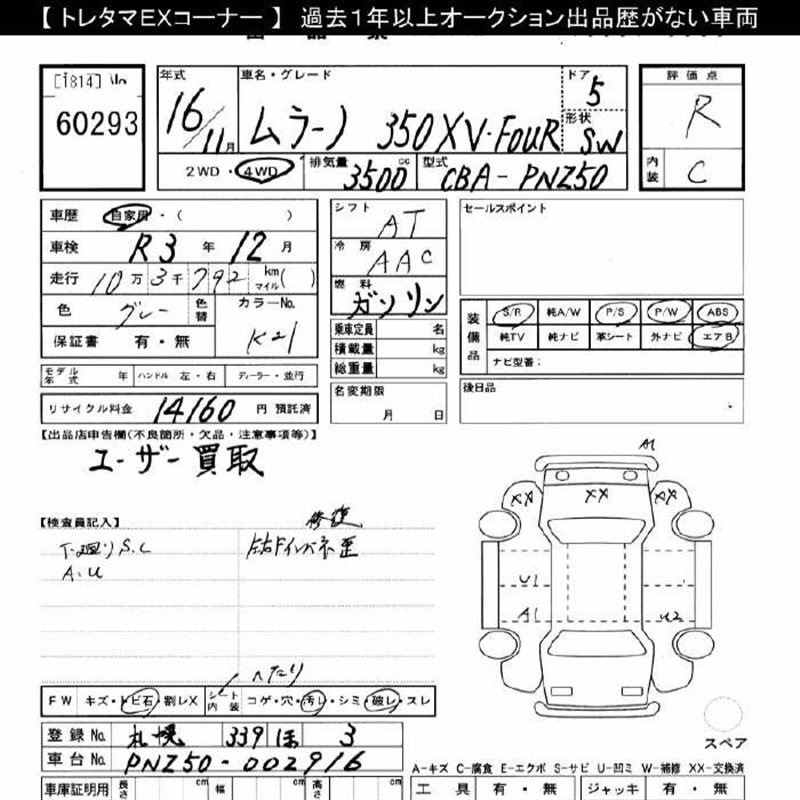 【 トレタマEXコーナー 】 過去1年以上オークション出品歴がない車両
60293
年式 16/11月
車名・グレード ムラーノ 350XV・FOUR
ドア 5
形状 SW
評価点 R
内装 C
2WD・4WD
排気量 3500cc
型式 CBA-PNZ50
車歴 自家用・( )
車検 R3年 12月
走行 10万3千792 km マイル( )
色 グレー 色替 カラーNo. K21
保証書 有・無
シフト AT
冷房 AAC
燃料 ガソリン
乗車定員 名
積載量 kg
総重量 kg
セールスポイント
装備品 S/R 純A/W P/S P/W ABS
純TV 純ナビ 革シート 外ナビ エアB
ナビ型番:
モデル年式 年 ハンドル 左・右 ディーラー・並行
名変期限 月 日
後日品
リサイクル料金 14160 円 預託済
【出品店申告欄(不良箇所・欠品・注意事項等)】
ユーザー買取
A1
【検査員記入】 修復
下廻りS.C
A.U
XX XX XX
U1
A1 U2
へたり
FW キズ・トビ石・割レX シート内装 コゲ・穴・汚レ・シミ・破レ・スレ
スペア
登録No. 札幌 339 ほ 3
車台No. PNZ50-002916
A-キズ C-腐食 E-エクボ S-サビ U-凹ミ W-補修 XX-交換済
車庫証明用 長さ cm 幅 cm 高さ cm
工具 有・無 ジャッキ 有・無